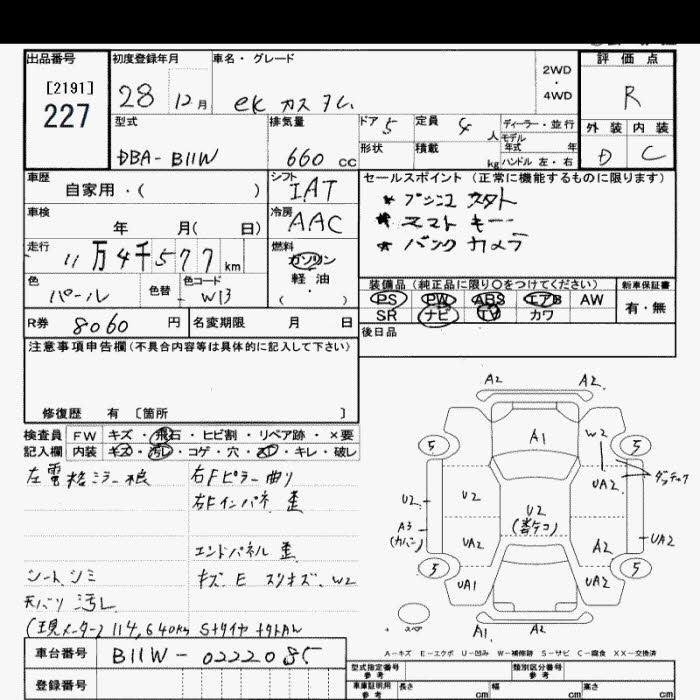 出品番号 初度登録年月 車名・グレード 評価点
[2191]
227
28 12月 ek カスタム 2WD ・ 4WD R
型式 排気量 ドア 5 定員 4 人 ディーラー・並行 外装 内装
モデル年式 年
DBA- B11W 660 cc 形状 積載 kg ハンドル 左・右 D C
車歴 自家用・( ) シフト IAT セールスポイント (正常に機能するものに限ります)
* プッシュ スタート
車検 年 月( 日) 冷房 AAC * スマート キー
* バック カメラ
走行 11万4千577 km 燃料 ガソリン 軽油 ・ ( )
色 パール 色替 色コード W13 装備品 (純正品に限り○をつけてください) 新車保証書
PS PW ABS エアB AW 有・無
SR ナビ TV カワ
R券 8060 円 名変期限 月 日 後日品
注意事項申告欄 (不具合内容等は具体的に記入して下さい)
修復歴 有 〔箇所 〕
検査員 FW キズ・飛石・ヒビ割・リペア跡・×要
記入欄 内装 キズ・汚レ・コゲ・穴・スレ・キレ・破レ
左電格ミラー 右Fピラー曲り
右Fインパネ 歪
エンドパネル 歪
シートシミ キズ. E スリキズ. W2
天バリ 汚レ
(現メーター) 114,640km
車台番号 B11W - 0222085
登録番号
A2 A2
A1 W2
5 5
UA2
U2 U2 U2
A3 UA2 A2 UA2
5 5
UA1 UA2
A1 A2
A−キズ E−エクボ U−凹み W−補修跡 S−サビ C−腐食 XX−交換済
型式指定番号 参考 類別区分番号 参考
車庫証明用 参考 長さ cm 幅 cm 高さ cm